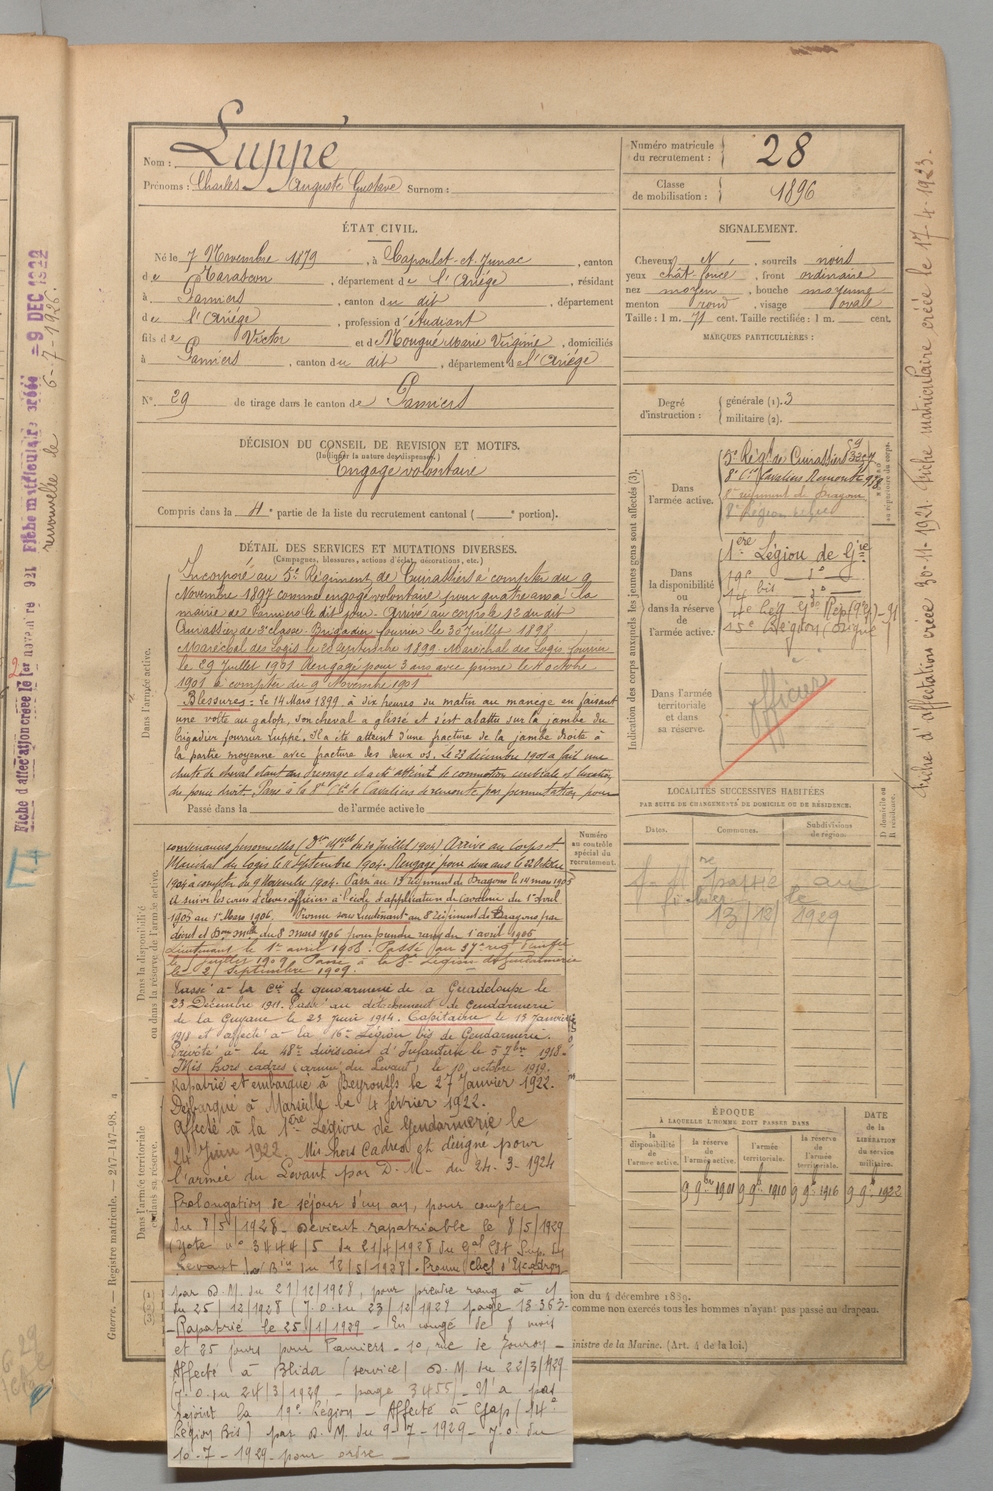 Nom : Luppé
Prénoms : Charles Auguste Gustave Surnom :
Numéro matricule du recrutement : 28
Classe de mobilisation : 1896
ÉTAT CIVIL.
Né le 7 Novembre 1879, à Capoulet-et-Junac, canton
de Tarascon, département de l'Ariège, résidant
à Pamiers, canton du dit, département
de l'Ariège, profession d'étudiant
fils de Victor et de Mougué Marie Virginie, domiciliés
à Pamiers, canton du dit, département de l'Ariège
N° 29 de tirage dans le canton de Pamiers
SIGNALEMENT.
Cheveux N, sourcils noirs
yeux chât. foncé, front ordinaire
nez moyen, bouche moyenne
menton rond, visage ovale
Taille : 1 m. 71 cent. Taille rectifiée : 1 m. cent.
MARQUES PARTICULIÈRES :
Degré d'instruction : générale (1). 3
militaire (2).
DÉCISION DU CONSEIL DE REVISION ET MOTIFS.
Engagé volontaire
Compris dans la 4e partie de la liste du recrutement cantonal ( e portion).
DÉTAIL DES SERVICES ET MUTATIONS DIVERSES.
(Campagnes, blessures, actions d'éclat, décorations, etc.)
Dans l'armée active.
Incorporé au 5e Régiment de Cuirassiers à compter du 9
Novembre 1897 comme engagé volontaire pour quatre ans à la
mairie de Pamiers le dit jour. Arrivé au corps le 12 du dit
Cuirassier de 2e classe. Brigadier fourrier le 30 Juillet 1898
Maréchal des Logis le 28 septembre 1899. Maréchal des Logis fourrier
le 29 Juillet 1901 Rengagé pour 3 ans avec prime le 4 octobre
1901 à compter du 9 Novembre 1901
Blessures : Le 14 Mars 1899 à dix heures du matin au manège en faisant
une volte au galop, son cheval a glissé et s'est abattu sur la jambe du
brigadier fourrier Luppé. Il a été atteint d'une fracture de la jambe droite à
la partie moyenne avec fracture des deux os. Le 23 décembre 1901 a fait une
chute de cheval étant au dressage et a été atteint de commotion cérébrale et luxation
du pouce droit. Passé à la 8e Cie de Cavaliers de remonte par permutation pour
Passé dans la de l'armée active le
convenances personnelles Arrivé au Corps et
Maréchal du Logis le 11 Septembre 1904. Rengagé pour deux ans le 22 Octobre
1904 à compter du 9 Novembre 1904. Passé au 13e régiment de Dragons le 14 mars 1905
et suivi les cours d'élève officiers à l'école d'application de cavalerie du 1er Avril
1905 au 1er Mars 1906. Promu sous lieutenant au 8e régiment de Dragons par
décret du 8 mars 1906 pour prendre rang du 1er avril 1906
Lieutenant le 1er avril 1908. Passé au 37e régt d'inf.
le juillet 1909. Passé à la 8e Légion de Gendarmerie
le 21 Septembre 1909.
Passé à la Cie de gendarmerie de la Guadeloupe le
23 Décembre 1911. Passé au détachement de Gendarmerie
de la Guyane le 23 juin 1914. Capitaine le 13 janvier
1918 et affecté à la 16e Légion bis de Gendarmerie.
Prévôté à la 48e division d'Infanterie le 5 7bre 1918.
Mis hors cadres (armée du Levant) le 10 octobre 1919.
Rapatrié et embarqué à Beyrouth le 27 Janvier 1922.
Débarqué à Marseille le 4 février 1922.
Affecté à la 1ère Légion de Gendarmerie le
24 Juin 1922. Mis hors Cadres et désigné pour
l'armée du Levant par D.M. du 24-3-1924
Prolongation de séjour d'un an, pour compter
du 8/5/1928 - Devient rapatriable le 8/5/1929
(Note n° 3444/5 du 21/4/1928 du Gal Cdt Sup. du
Levant Bin du 12/5/1928) - Promu Chef d'Escadron
par D.M. du 21/12/1928, pour prendre rang à c/
du 25/12/1928 (J.O. du 23/12/1928 page 13.363-
- Rapatrié le 25/1/1929 - En congé de 8 mois
et 25 jours pour Pamiers - 10, rue de
Affecté à Blida (service) D.M. du 22/3/1929
J.O. du 24/3/1929 - page 3455) - N'a pas
rejoint la 19e Légion - Affecté à Gap (14e
Légion Bis) par D.M. du 9-7-1929 - J.O. du
10-7-1929 pour ordre -
Dans la disponibilité ou dans la réserve de l'armée active.
Dans l'armée territoriale et dans sa réserve.
Numéro au contrôle spécial du recrutement.
Indication des corps auxquels les jeunes gens sont affectés (3).
Dans l'armée active.
5e Régt de Cuirassiers
8e Cie Cavaliers Remonte
8e Légion
Dans la disponibilité ou dans la réserve de l'armée active.
1ère Légion de Gie
19e
14 bis
15e Légion
Dans l'armée territoriale et dans sa réserve.
Officier
LOCALITÉS SUCCESSIVES HABITÉES
PAR SUITE DE CHANGEMENTS DE DOMICILE OU DE RÉSIDENCE.
Dates. Communes. Subdivisions de région. D domicile ou R résidence.
passé au
fichier le
13/12/1929
ÉPOQUE
À LAQUELLE L'HOMME DOIT PASSER DANS
la disponibilité de l'armée active. la réserve de l'armée active. l'armée territoriale. la réserve de l'armée territoriale. DATE de la LIBÉRATION du service militaire.
9 9bre 1901 9 9b. 1910 9 9b. 1916 9 9b. 1922
ion du 4 décembre 1889.
comme non exercés tous les hommes n'ayant pas passé au drapeau.
inistre de la Marine. (Art. 4 de la loi.)
Guerre. — Registre matricule. — 247-147-98.
Fiche d'affectation créée 30-11-1921. Fiche matriculaire créée le 17-4-1923.
Fiche d'affectation créée le 1er novembre 1921 Fiche matriculaire créée - 9 DEC 1922
renouvelle le 6-7-1926